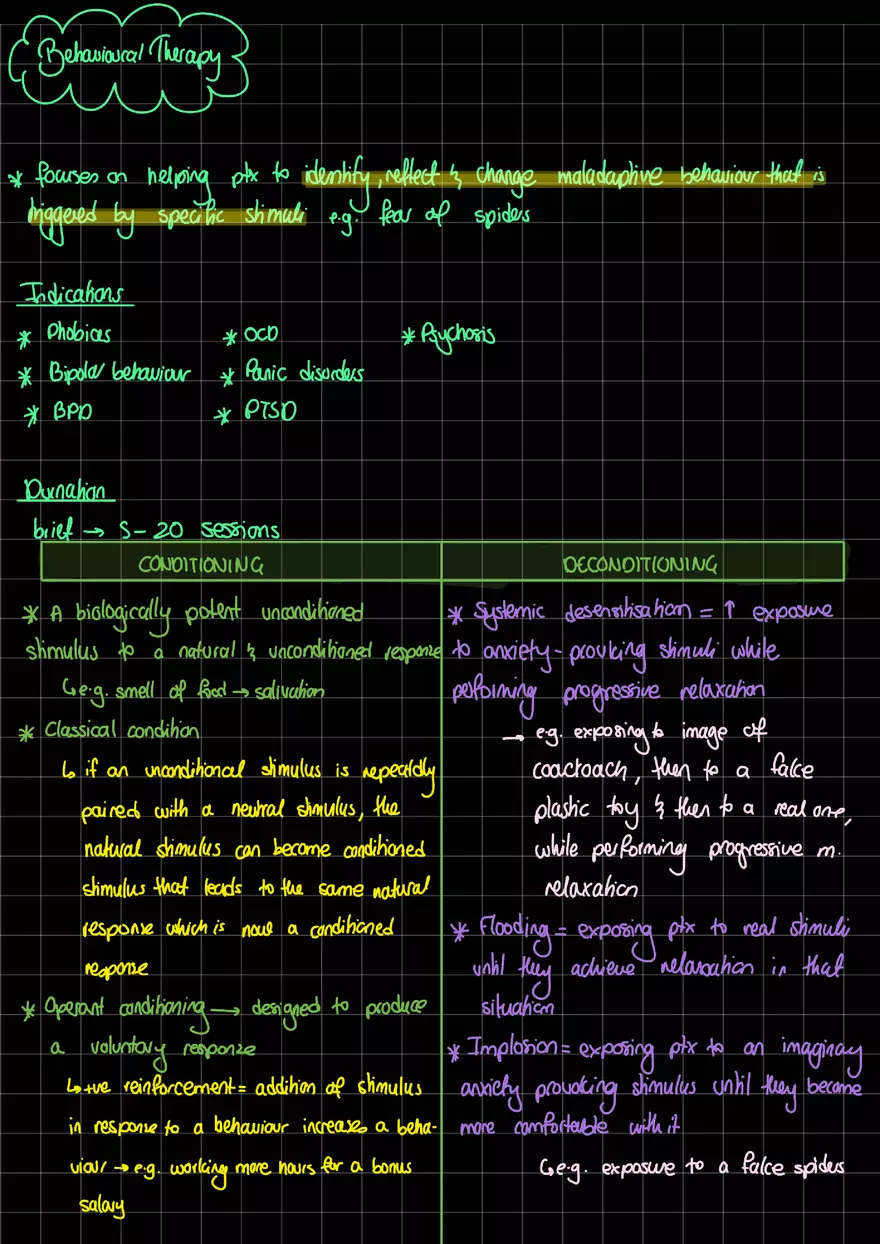 Behavioural Therapy
* focuses on helping ptx to identify, reflect & change maladaptive behaviour that is
triggered by specific stimuli e.g. fear of spiders
Indications
* Phobias * OCD * Psychosis
* Bipolar behaviour * Panic disorders
* BPD * PTSD
Durnation
brief → 5-20 sessions
CONDITIONING
* A biologically potent unconditioned
stimulus to a natural & unconditioned response
↳ e.g. smell of food → salivation
* Classical condition
↳ if an unconditional stimulus is repeatdly
paired with a neutral stimulus, the
natural stimulus can become conditioned
stimulus that leads to the same natural
response which is now a conditioned
response
* Operant conditioning → designed to produce
a voluntary response
↳ +ve reinforcement = addition of stimulus
in response to a behaviour increases a beha-
viour → e.g. working more hours for a bonus
salary
DECONDITIONING
* Systemic desensitisation = ↑ exposure
to anxiety-provking stimuli while
performing progressive relaxation
→ e.g. exposing to image of
coackoach, then to a fake
plastic toy & then to a real one,
while performing progressive m.
relaxation
* Flooding = exposing ptx to real stimuli
until they achieve relaxation in that
situation
* Implosion = exposing ptx to an imaginay
anxiety provoking stimulus until they become
more comfortable with it
↳ e.g. exposure to a fake spiders